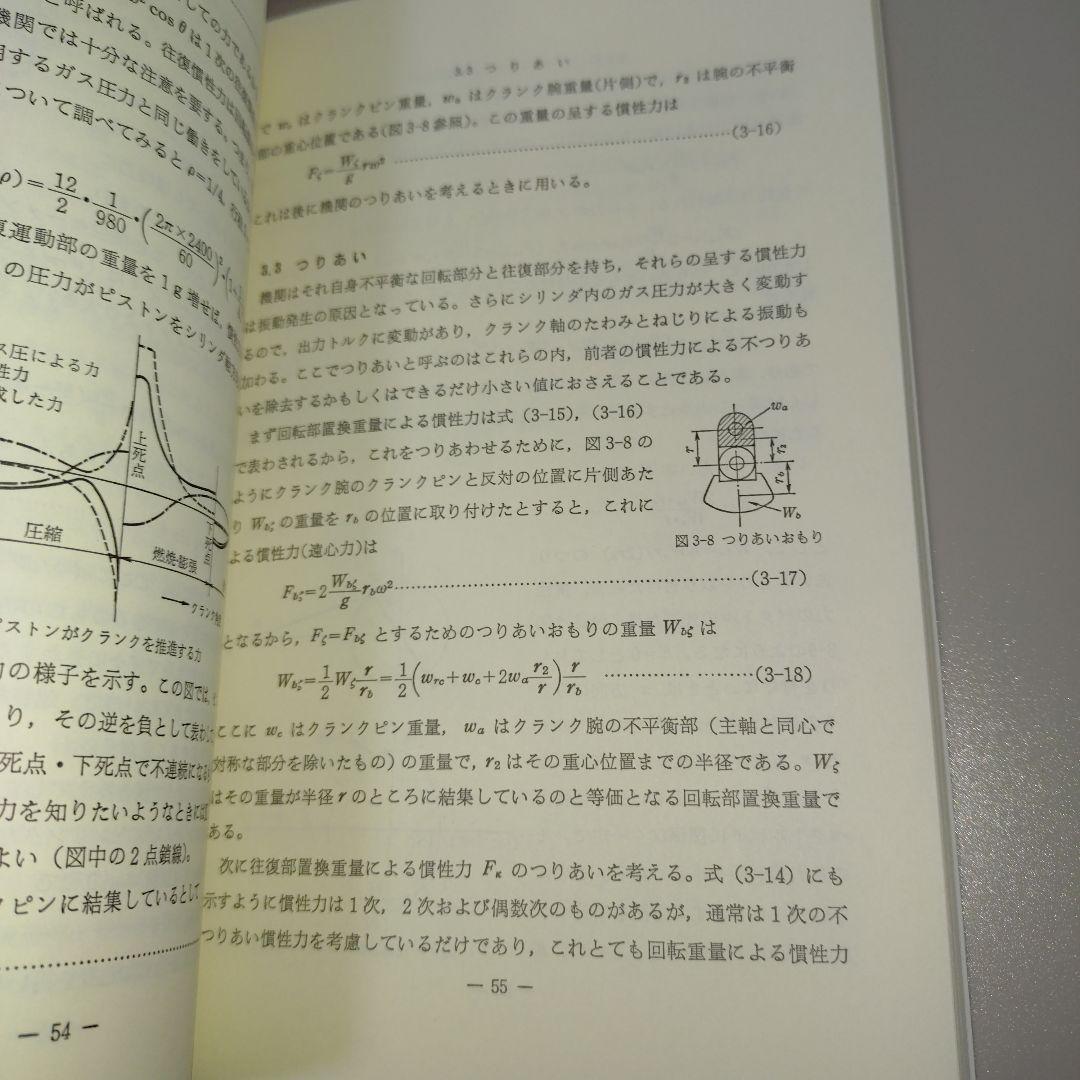 cosθは1次の
と呼ばれる。往復慣性力は
機関では十分な注意を要する。
用するガス圧力と同じ働きをしてい
ついて調べてみると ρ=1/4,
ρ)=12/2・1/980・(2π×2400/60)²・
運動部の重量を1g増せば,
の圧力がピストンをシリンダ
ス圧による力
性力
成した力
上死点
下死点
圧縮
燃焼・膨張
クランク
ピストンがクランクを推進する力
の様子を示す。この図では,
り, その逆を負として表わし
死点・下死点で不連続になる
力を知りたいようなときには
よい (図中の2点鎖線)。
クピンに結集しているとして
— 54 —
3.3 つりあい
で w꜀ はクランクピン重量, wₐ はクランク腕重量(片側)で, r₂ は腕の不平衡
部の重心位置である(図3-8参照)。この重量の呈する慣性力は
Fζ=Wζ/g rω² ……(3-16)
これは後に機関のつりあいを考えるときに用いる。
3.3 つりあい
機関はそれ自身不平衡な回転部分と往復部分を持ち, それらの呈する慣性力
は振動発生の原因となっている。さらにシリンダ内のガス圧力が大きく変動す
るので, 出力トルクに変動があり, クランク軸のたわみとねじりによる振動も
加わる。ここでつりあいと呼ぶのはこれらの内, 前者の慣性力による不つりあ
いを除去するかもしくはできるだけ小さい値におさえることである。
まず回転部置換重量による慣性力は式 (3-15), (3-16)
で表わされるから, これをつりあわせるために, 図3-8の
ようにクランク腕のクランクピンと反対の位置に片側あた
り Wbζ の重量を rb の位置に取り付けたとすると, これに
よる慣性力(遠心力)は
wa
r
r₂
rb
Wb
図3-8 つりあいおもり
Fbζ=2 Wbζ/g rbω² ……(3-17)
となるから, Fζ=Fbζ とするためのつりあいおもりの重量 Wbζ は
Wbζ=1/2 Wζ r/rb=1/2(wrc+wc+2wa r₂/r) r/rb ……(3-18)
ここに wc はクランクピン重量, wa はクランク腕の不平衡部 (主軸と同心で
対称な部分を除いたもの) の重量で, r₂ はその重心位置までの半径である。Wζ
はその重量が半径 r のところに結集しているのと等価となる回転部置換重量で
ある。
次に往復部置換重量による慣性力 Fκ のつりあいを考える。式 (3-14) にも
示すように慣性力は1次, 2次および偶数次のものがあるが, 通常は1次の不
つりあい慣性力を考慮しているだけであり, これとても回転重量による慣性力
— 55 —